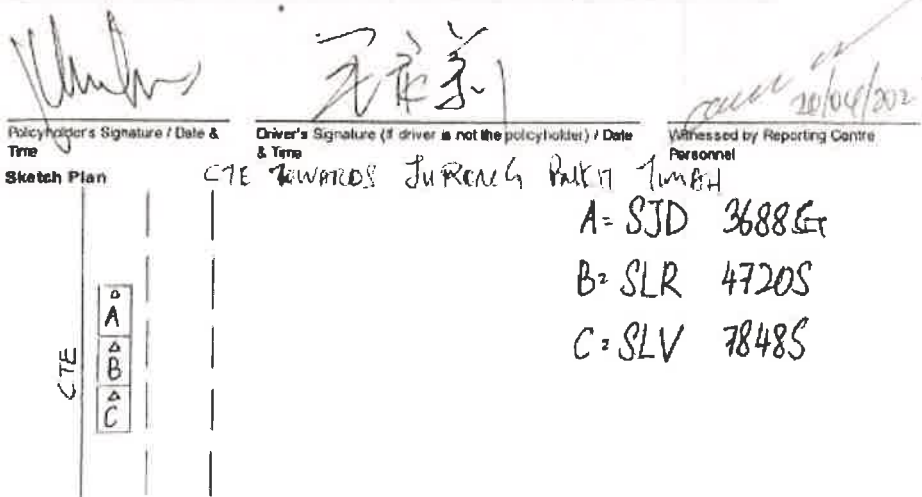 20/04/202
Policyholder's Signature / Date & Time
Driver's Signature (If driver is not the policyholder) / Date & Time
Witnessed by Reporting Centre Personnel
Sketch Plan
CTE TOWARDS JURONG BUKIT TIMAH
A= SJD 3688G
B= SLR 4720S
C= SLV 7848S
CTE
A
B
C